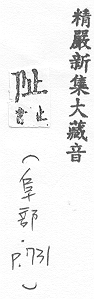 精嚴新集大藏音
阯
音止
(阜部.P.731)